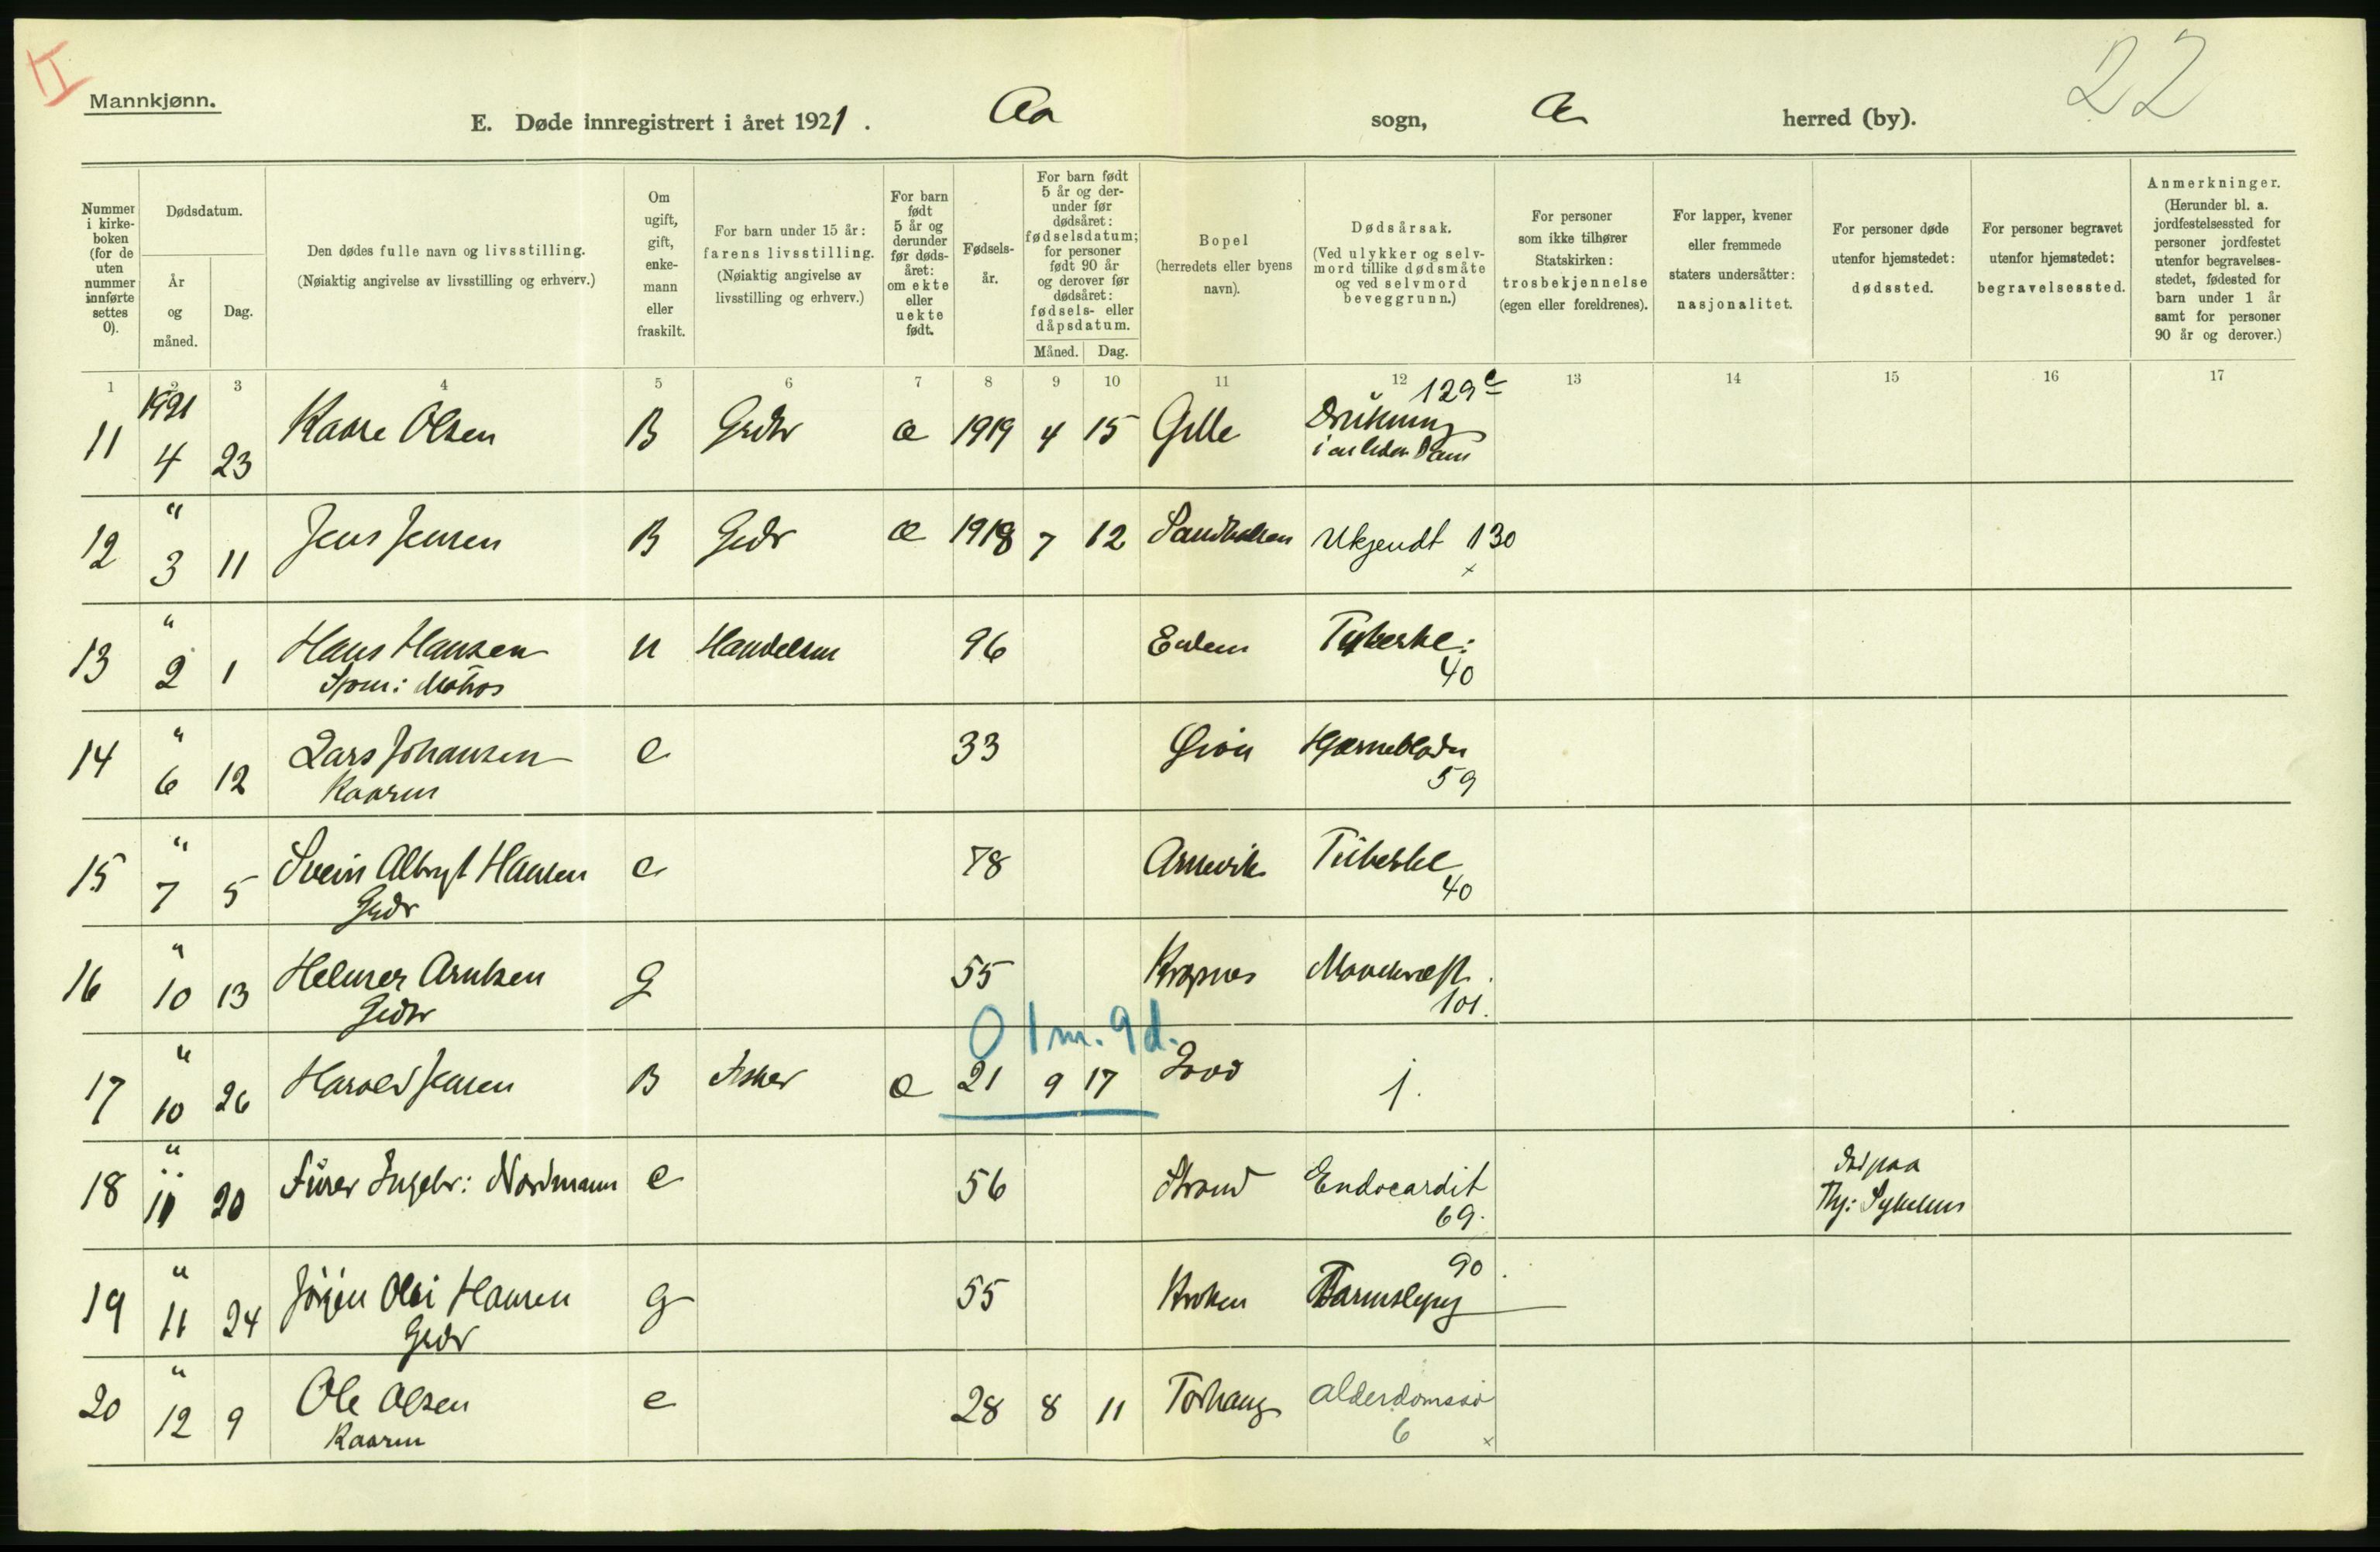 II
Mannkjønn.
22
E. Døde innregistrert i året 1921. Aa sogn, herred (by).
Nummer i kirke-boken (for de uten nummer innførte settes 0).
Dødsdatum.
År og måned.
Dag.
Den dødes fulle navn og livsstilling.
(Nøiaktig angivelse av livsstilling og erhverv.)
Om ugift, gift, enke-mann eller fraskilt.
For barn under 15 år: farens livsstilling. (Nøiaktig angivelse av livsstilling og erhverv.)
For barn født 5 år og derunder før døds-året: om ekte eller uekte født.
Fødsels-år.
For barn født 5 år og der-under før dødsåret: fødselsdatum; for personer født 90 år og derover før dødsåret: fødsels- eller dåpsdatum.
Måned. Dag.
Bopel (herredets eller byens navn).
Dødsårsak. (Ved ulykker og selv-mord tillike dødsmåte og ved selvmord beveggrunn.)
For personer som ikke tilhører Statskirken: trosbekjennelse (egen eller foreldrenes).
For lapper, kvener eller fremmede staters undersåtter: nasjonalitet.
For personer døde utenfor hjemstedet: dødssted.
For personer begravet utenfor hjemstedet: begravelsessted.
Anmerkninger. (Herunder bl. a. jordfestelsessted for personer jordfestet utenfor begravelses-stedet, fødested for barn under 1 år samt for personer 90 år og derover.)
1 2 3 4 5 6 7 8 9 10 11 12 13 14 15 16 17
1921
129 c
11 4 23 Kaare Olsen B Gbr æ 1919 4 15 Gille Drukning
i en liden Dam
12 " 3 11 Jens Jensen B Gbr æ 1918 7 12 Ukjendt 130
x
13 " 2 1 Hans Hansen u Handelsm 96 Tuberkl:
Matros 40
14 " 6 12 Lars Johansen e 33 Hjærneblødn
Kaarm 59
15 " 7 5 Svein Hansen e 78 Arnevik Tuberkl
Gbr 40
16 " 10 13 Helmer Arntsen g 55 Mavekræft.
Gbr 101.
0 1 m. 9 d.
17 " 10 26 Harald Jensen B Fisker æ 21 9 17 1.
18 " 11 20 Ingebr: Nordmann e 56 Strand Endocardit
69.
Død paa
Sykehus
90
19 " 11 24 Jörgen Olai Hansen g 55 Kroken Tarmslyng
Gbr
20 " 12 9 Ole Olsen e 28 8 11 Torhaug Alderdomssv
Kaarm 6 x